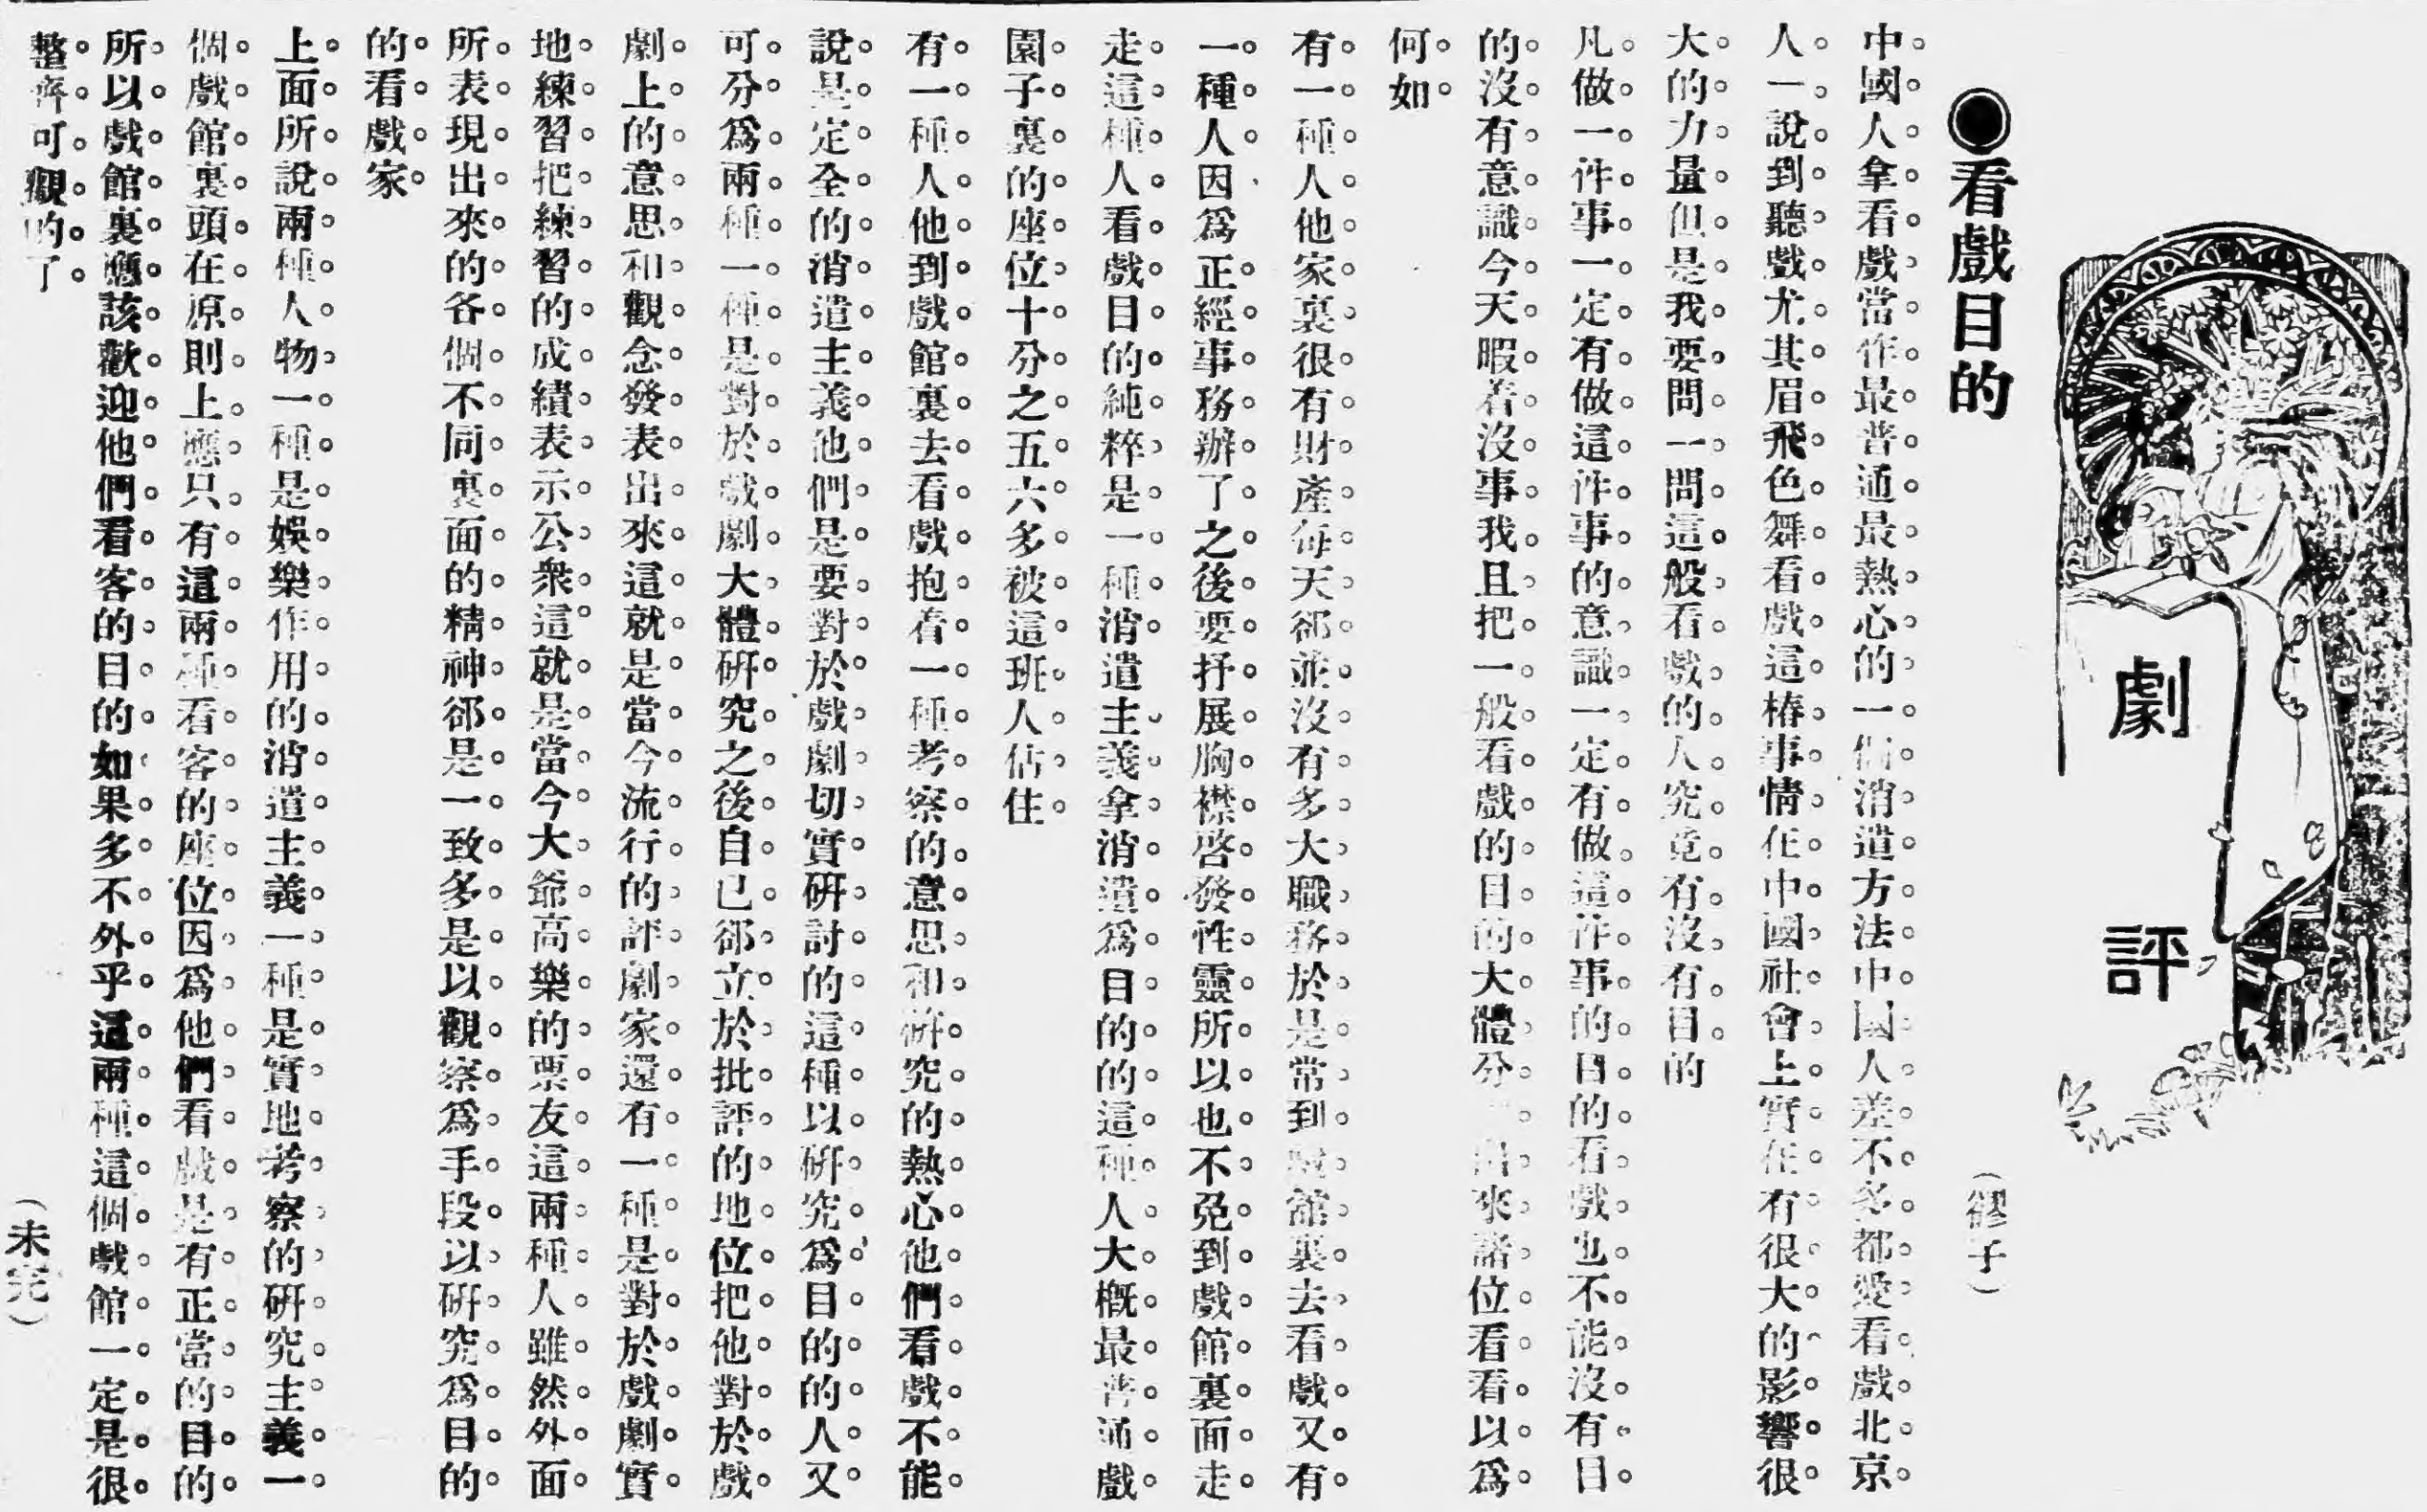 劇評
●看戲目的
(穋子)
中國人拿看戲當作最普通最熱心的一個消遣方法中國人差不多都愛看戲北京
人一說到聽戲尤其眉飛色舞看戲這樁事情在中國社會上實在有很大的影響很
大的力量但是我要問一問這般看戲的人究竟有沒有目的
凡做一件事一定有做這件事的意識一定有做這件事的目的看戲也不能沒有目
的沒有意識今天暇着沒事我且把一般看戲的目的大體分出來諸位看看以爲
何如
有一種人他家裏很有財產每天都並沒有多大職務於是常到戲館裏去看戲又有
一種人因爲正經事務辦了之後要抒展胸襟啓發性靈所以也不免到戲館裏面走
走這種人看戲目的純粹是一種消遣主義拿消遣爲目的的這種人大概最普通戲
園子裏的座位十分之五六多被這班人佔住
有一種人他到戲館裏去看戲抱着一種考察的意思和研究的熱心他們看戲不能
說是定全的消遣主義他們是要對於戲劇切實研討的這種以研究爲目的的人又
可分爲兩種一種是對於戲劇大體研究之後自已都立於批評的地位把他對於戲
劇上的意思和觀念發表出來這就是當今流行的評劇家還有一種是對於戲劇實
地練習把練習的成績表示公衆這就是當今大爺高樂的票友這兩種人雖然外面
所表現出來的各個不同裏面的精神都是一致多是以觀察爲手段以研究爲目的
的看戲家
上面所說兩種人物一種是娛樂作用的消遣主義一種是實地考察的研究主義一
個戲館裏頭在原則上應只有這兩種看客的座位因爲他們看戲是有正當的目的
所以戲館裏應該歡迎他們看客的目的如果多不外乎這兩種這個戲館一定是很
整齊可觀的了
(未完)